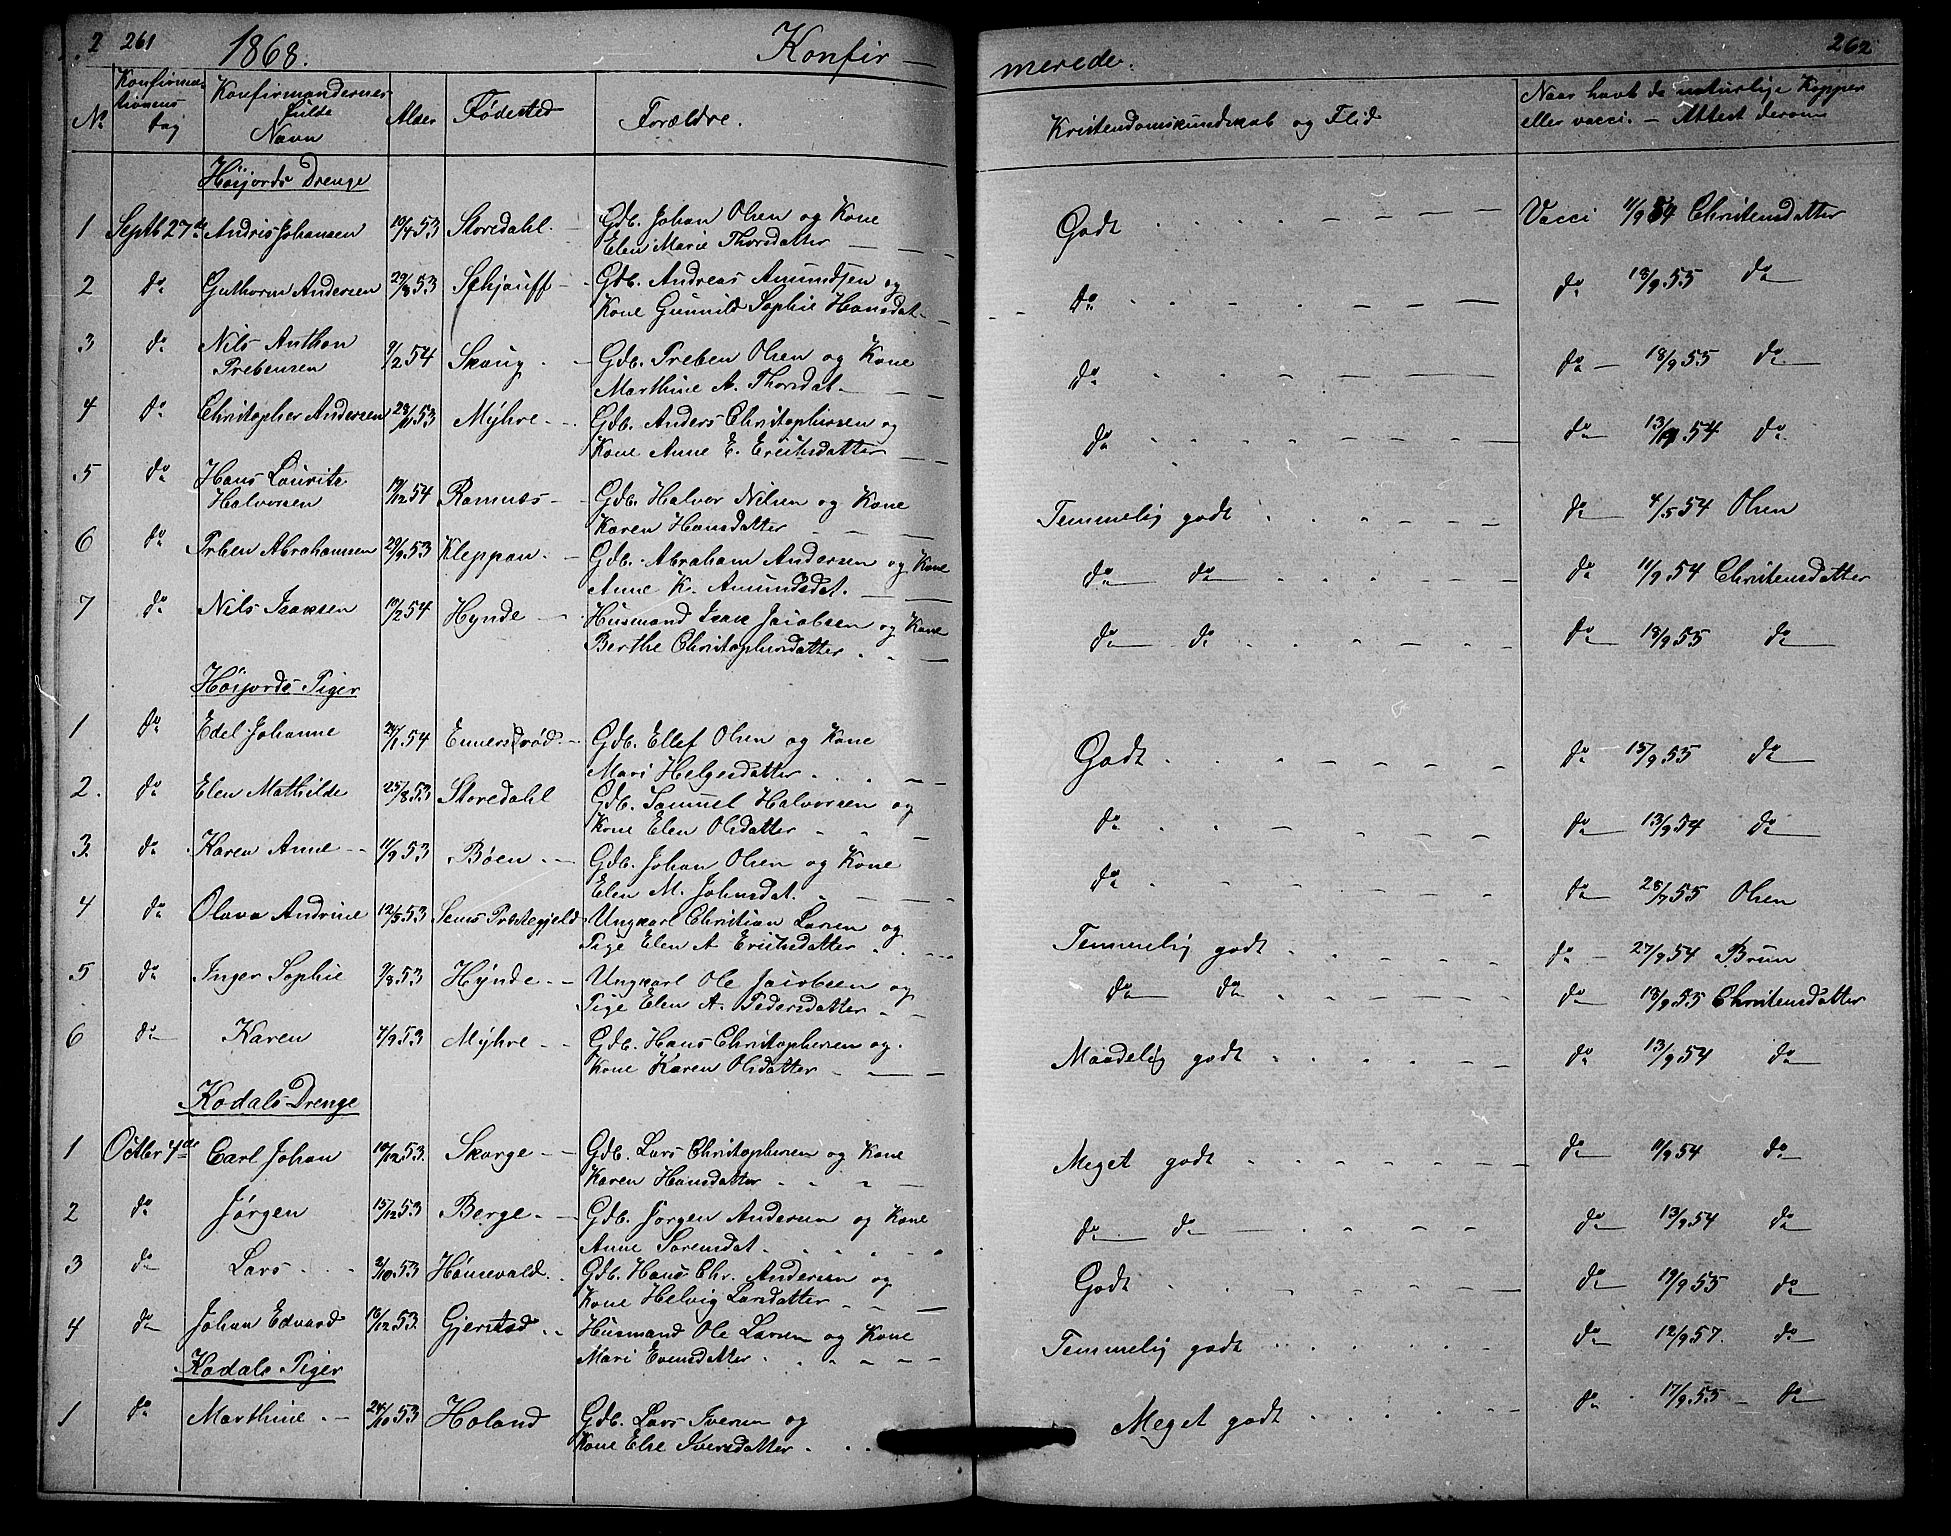 2 261 1868. Konfir- merede. 262
No Konfirmationens dag Konfirmandernes fulde Navn Alder Fødested Forældre. Kristendomskundskab og Flid Naar havt de naturlige Kopper eller vacci. — Attest derom
Høijords Drenge
1 Septb 27de Andris Johansen 19/4 53 Storedahl. Gdb. Johan Olsen og Kone Elen Marie Thorsdatter Godt Vacci 11/9 54 Christensdatter
2 do Guthorm Andersen 29/8 53 Schjauff Gdb. Andreas Amundsen og Kone Gunnild Sophie Hansdat. do do 18/9 55 do
3 do Nils Anthon Prebensen 9/2 54 Skoug Gdb. Preben Olsen og Kone Marthine A. Thorsdat do do 18/9 55 do
4 do Christopher Andersen 23/11 53 Mÿhre Gdb. Anders Christophersen og Kone Anne E. Erichsdatter do do 13/9 54 do
5 do Hans Lauritz Halvorsen 54 Ramnæs Gdb. Halvor Nilsen og Kone Karen Hansdatter Temmelig godt do 4/5 54 Olsen
6 do Prben Abrahamsen 29/9 53 Kleppan. Gdb. Abraham Andersen og Kone Anne K. Amundsdat. do do do 11/9 54 Christensdatter
7 do Nils Isaksen 19/2 54 Hynde Husmand Isak Jacobsen og Kone Berthe Christophersdatter do do do 18/9 55 do
Høijords Piger
1 do Edel Johanne 24/1 54 Ennersdrød. Gdb. Ellef Olsen og Kone Mari Helgesdatter Godt do 15/9 55 do
2. do Elen Mathilde 25/8 53 Storedahl Gdb. Samuel Halvorsen og Kone Elen Olsdatter do do 13/9 54 do
3. do Karen Anne 11/9 53 Bøen Gdb. Johan Olsen og Kone Elen M. Johnsdat. do do 28/7 55 Olsen
4 do Olava Andrine 12/5 53 Sems Præstegjeld Ungkarl Christian Larsen og Pige Elen A Erichsdatter Temmelig godt do 27/9 54 Brun
5 do Inger Sophie 9/8 53 Hÿnde Ungkarl Ole Jacobsen og Pige Elen A. Pedersdatter do do do 18/9 55 Christensdatter
6 do Karen 4/9 53 Mÿhre Gdb. Hans Christophersen og Kone Karen Olsdatter Maadelig godt do 13/9 54 do
Kodals Drenge
1 Octbr 4de Carl Johan 10/12 53. Skorge Gdb. Lars Christophersen og Kone Karen Hansdatter Meget godt do 11/9 54 do
2 do Jørgen 15/12 53 Berge Gdb. Jørgen Andersen og Kone Anne Sørensdat. do do do 13/9 54 do
3 do Lars 2/10 53 Hønsvald. Gdb. Hans Chr. Andersen og Kone Helvig Larsdatter Godt do 19/9 55 do
4 do Johan Edvard 16/12 53. Gjerstad Husmand Ole Larsen og Kone Mari Evensdatter Temmelig godt do 12/9 57. do
Kodals Piger
1 do Marthine 24/10 53 Holand Gdb. Lars Iversen og Kone Else Iversdatter Meget godt do 17/9 55 do